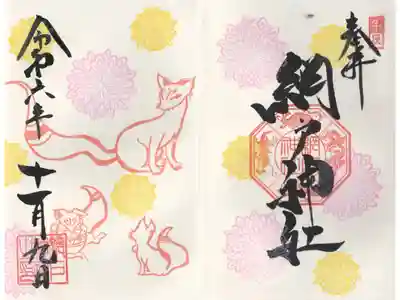 奉拝
網戸神社
令和六年
十一月九日